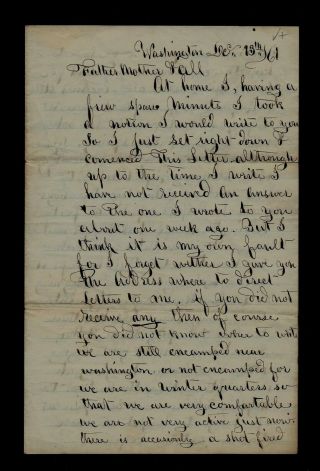 Washington Dec 15th /61
Father Mother & all
At home I, having a
few spair minuts I took
a notion I would write to you
So I just set right down &
comenced This letter although
up to the time I write I
have not received an answer
to the one I wrote to you
about one week ago. But I
think it is my own fault
for I forget wither I gave you
the Address where to direct
letters to me. if you did not
receive any then of course
you did not know where to write
we are still encamped near
washington or not encamped for
we are in winter quarters so
that we are very comfortable
we are not very active just now.
there is accusionly a shot fired